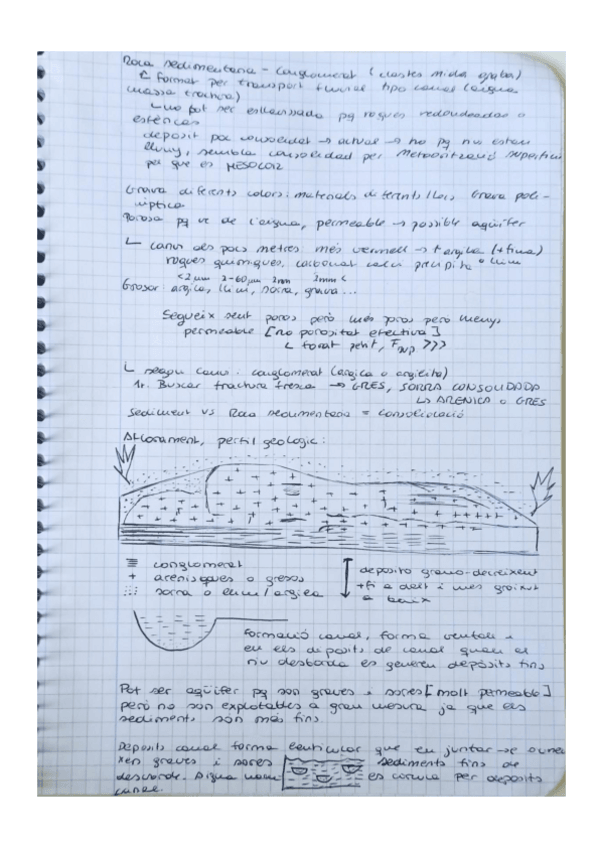 Roca sedimentaria - conglomerat (clastes mida grava)
format per transport fluvial tipo canal (aigua
massa tractiva)
no pot ser esllavissada pq roques redondeadas o
esfèricas
deposit poc consolidat → actual → no pq no estan
lluny, sembla consolidad per meteorització superficial
pq que es MESOZOIC
Grava diferents colors: materials diferents llocs, Grava poli-
míptica
Porosa pq ve de l'aigua, permeable → possible aqüifer
canvi als pocs metres: més vermell → + argila (+fina)
roques químiques, carbonat calci precipita o llim
<2 µm 2-60 µm 2mm 2mm <
Grosor: argila, llim, sorra, grava...
Segueix sent poros però més poros pero menys
permeable [no porositat efectiva]
forat petit, Fsup >>>
segon canvi: conglomerat (argila o argilita)
1r. Buscar fractura fresca → GRES, SORRA CONSOLIDADA
↳ ARENICA o GRES
Sediment vs Roca sedimentaria = consolidació
Aflorament, perfil geologic:
conglomerat
+ arenisques o gresos
sorra o llim/argila
deposito grano-decreixent
+fi a dalt i mes groixut
a baix
Formació canal, forma ventall i
en els diposits de canal quan el
riu desborda es generen depòsits fins
Pot ser aqüifer pq son graves i sorres [molt permeable]
però no son explotables a gran mesura ja que els
sediments són més fins
Deposits canal forma lenticular que en juntar-se
xen graves i sores sediments fins de
desborde. Aigua es comuna per deposits
canal.